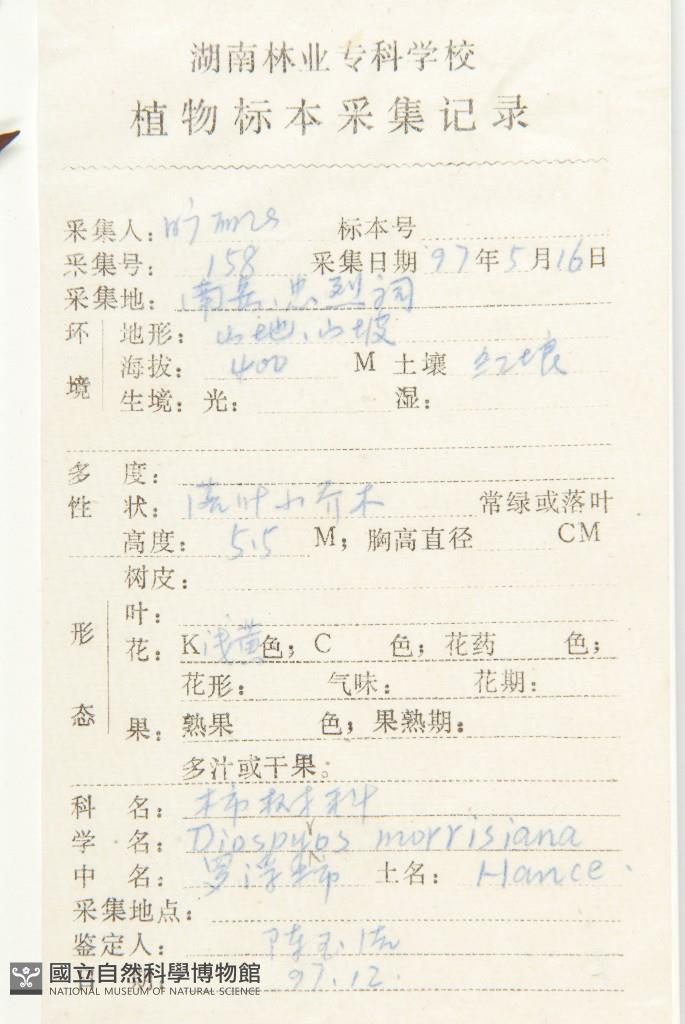 湖南林业专科学校
植物标本采集记录
采集人: 标本号
采集号: 158 采集日期 97年5月16日
采集地: 南岳、忠烈祠
环境 地形: 山地、山坡
海拔: 400 M 土壤 红壤
生境: 光: 湿:
多度:
性状: 落叶小乔木 常绿或落叶
高度: 5.5 M; 胸高直径 CM
树皮:
形态 叶:
花: K浅黄色; C 色; 花药 色;
花形: 气味: 花期:
果: 熟果 色; 果熟期:
多汁或干果。
科名: 柿树科
学名: Diospyros morrisiana
中名: 罗浮柿 土名: Hance.
采集地点:
鉴定人:
日期: 97.12.
國立自然科學博物館
NATIONAL MUSEUM OF NATURAL SCIENCE